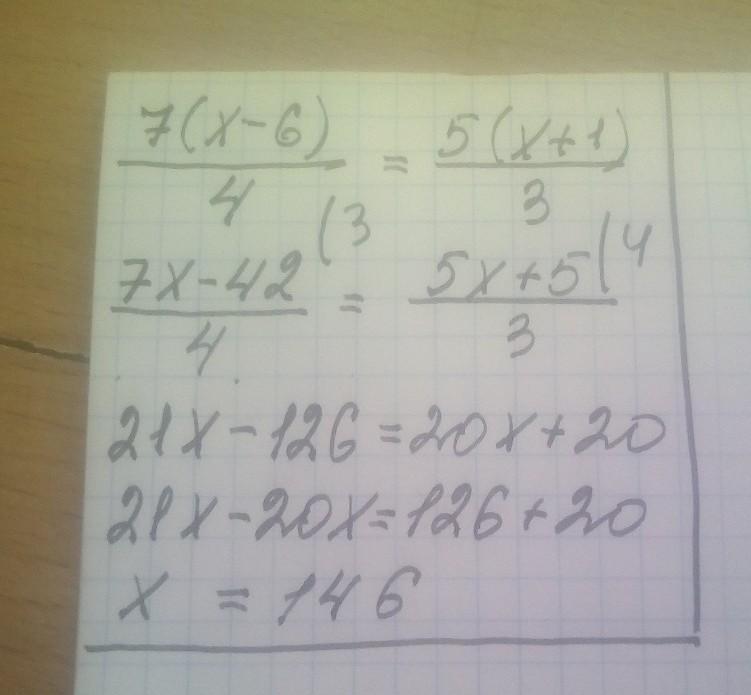 7(x-6)/4 = 5(x+1)/3
7x-42/4 (3 = 5x+5/3 (4
21x-126=20x+20
21x-20x=126+20
x = 146